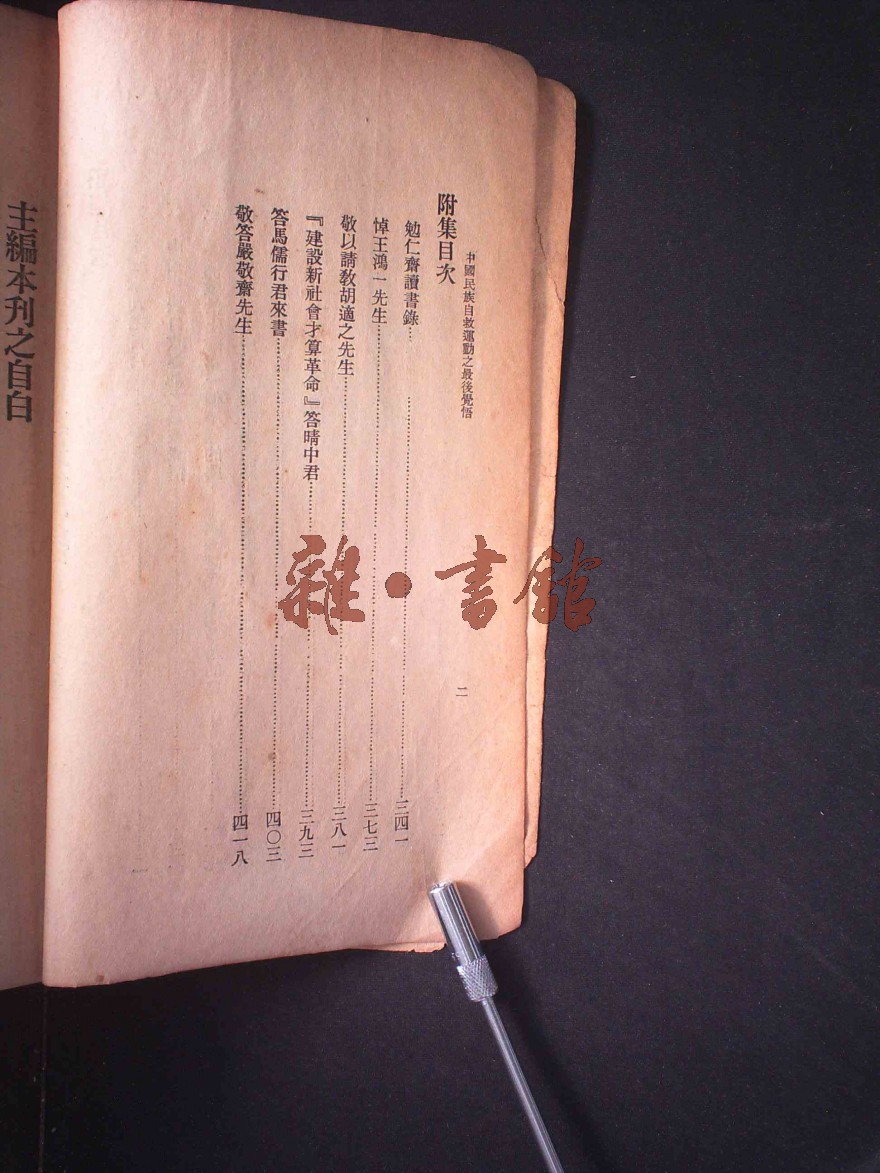 中國民族自救運動之最後覺悟
二
附集目次
勉仁齋讀書錄…………三四一
悼王鴻一先生…………三七三
敬以請教胡適之先生…………三八一
『建設新社會才算革命』答晴中君…………三九三
答馬儒行君來書…………四〇三
敬答嚴敬齋先生…………四一八
主編本刊之自白
雜·書館